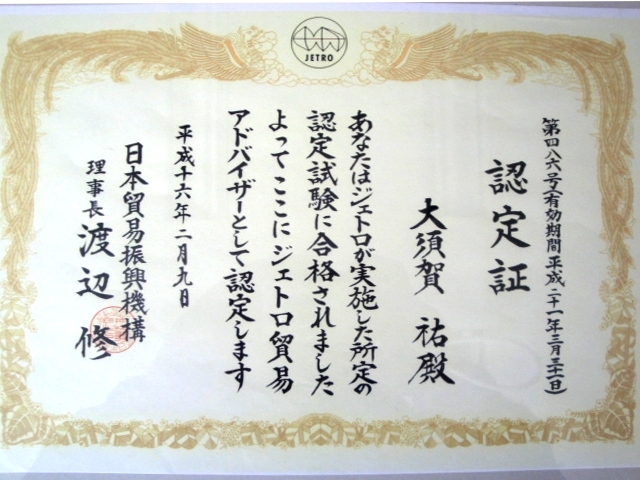 JETRO
第四八六号(有効期間 平成二十一年三月三十一日)
認定証
大須賀 祐殿
あなたはジェトロが実施した所定の
認定試験に合格されました
よってここにジェトロ貿易
アドバイザーとして認定します
平成十六年二月九日
日本貿易振興機構
理事長 渡辺 修